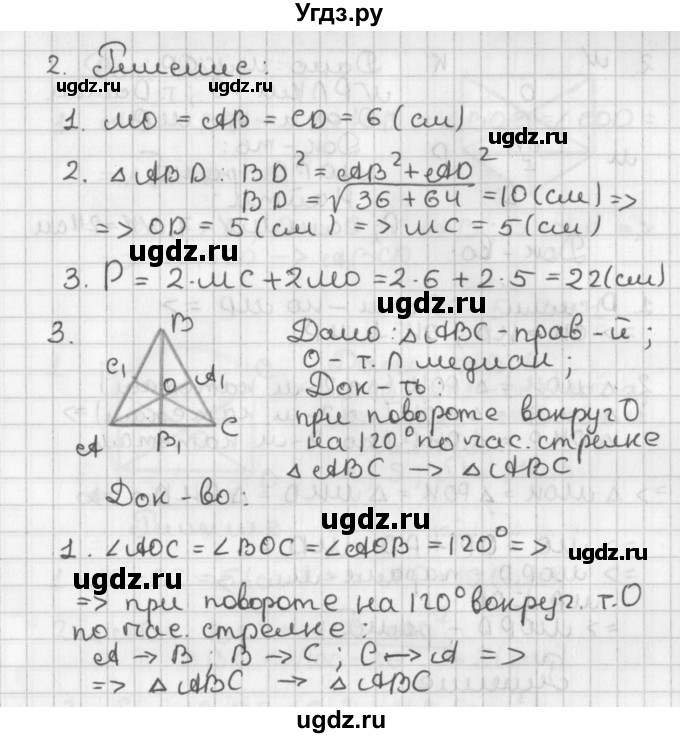 Угдз.ру
2. Решение:
ugdz.ru ugdz.ru
1. MO = AB = CD = 6 (см)
ugdz.ru
2. △ABD: BD² = AB² + AD²
BD = √36 + 64 = 10 (см) =>
=> OD = 5 (см) => MC = 5 (см)
ugdz.ru
3. P = 2·MC + 2MO = 2·6 + 2·5 = 22 (см)
3. B Дано: △ABC - прав-й;
C₁ O A₁ O - т. ∩ медиан;
Док-ть:
A B₁ C при повороте вокруг O
на 120° по час. стрелке
△ABC → △ABC
Док-во:
ugdz.ru
1. ∠AOC = ∠BOC = ∠AOB = 120° =>
ugdz.ru
ugdz.ru
=> при повороте на 120° вокруг. т. O
по час. стрелке:
A → B; B → C; C ↔ A =>
=> △ABC → △ABC
ugdz.ru ugdz.ru
ugdz.ru